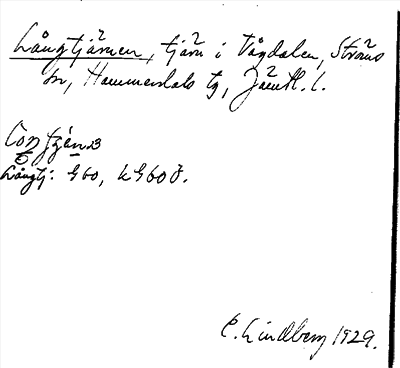 Långtjärnen, tjärn i Vågdalen, Ströms
sn, Hammerdals tg, Jämtl. l.
Långtj: G60, k G60 Ö.
E. Lindberg 1929.